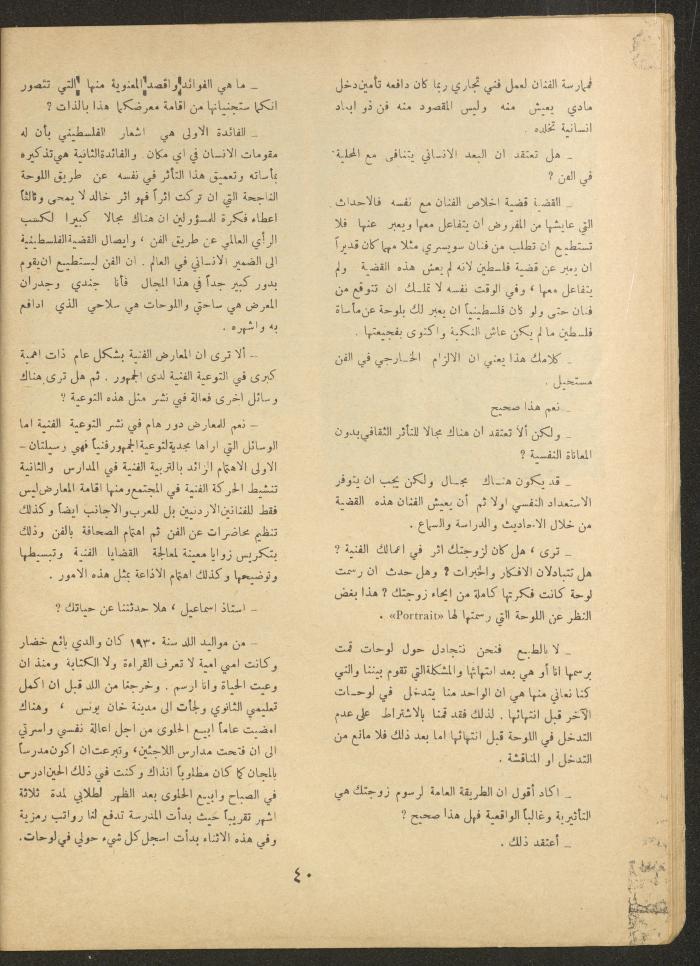 فممارسة الفنان لعمل فني تجاري ربما كان دافعه تأمين دخل
مادي يعيش منه وليس المقصود منه فن ذو ابعاد
انسانية تخلده .
_ هل تعتقد ان البعد الانساني يتنافى مع المحلية
في الفن ؟
_ القضية قضية اخلاص الفنان مع نفسه فالاحداث
التي عايشها من المفروض ان يتفاعل معها ويعبر عنها فلا
تستطيع ان تطلب من فنان سويسري مثلا مهما كان قديراً
ان يعبر عن قضية فلسطين لانه لم يعش هذه القضية ولم
يتفاعل معها ، وفي الوقت نفسه لا تملك ان تتوقع من
فنان حتى ولو كان فلسطينياً ان يعبر لك بلوحة عن مأساة
فلسطين ما لم يكن عاش النكبة واكتوى بفجيعتها .
_ كلامك هذا يعني ان الالزام الخارجي في الفن
مستحيل .
_ نعم هذا صحيح
_ ولكن ألا تعتقد ان هناك مجالا للتأثر الثقافي بدون
المعاناة النفسية ؟
_ قد يكون هناك مجال ولكن يجب ان يتوفر
الاستعداد النفسي اولا ثم أن يعيش الفنان هذه القضية
من خلال الاحاديث والدراسة والسماع .
_ ترى ، هل كان لزوجتك اثر في اعمالك الفنية ؟
هل تتبادلان الافكار والخبرات ؟ وهل حدث ان رسمت
لوحة كانت فكرتها كاملة من ايحاء زوجتك ؟ هذا بغض
النظر عن اللوحة التي رسمتها لها «Portrait» .
_ لا بالطبع فنحن نتجادل حول لوحات قمت
برسمها انا أو هي بعد انتهائها والمشكلة التي تقوم بيننا والتي
كنا نعاني منها هي ان الواحد منا يتدخل في لوحات
الآخر قبل انتهائها . لذلك فقد قمنا بالاشتراط على عدم
التدخل في اللوحة قبل انتهائها اما بعد ذلك فلا مانع من
التدخل او المناقشة .
_ اكاد أقول ان الطريقة العامة لرسوم زوجتك هي
التأثيرية وغالباً الواقعية فهل هذا صحيح ؟
_ أعتقد ذلك .
_ ما هي الفوائد واقصد المعنوية منها التي تتصور
انكما ستجنيانها من اقامة معرضكما هذا بالذات ؟
_ الفائدة الاولى هي اشعار الفلسطيني بأن له
مقومات الانسان في اي مكان والفائدة الثانية هي تذكيره
بمأساته وتعميق هذا التأثر في نفسه عن طريق اللوحة
الناجحة التي ان تركت اثراً فهو اثر خالد لا يمحى وثالثاً
اعطاء فكرة للمسؤولين ان هناك مجالا كبيرا لكسب
الرأي العالمي عن طريق الفن ، وايصال القضية الفلسطينية
الى الضمير الانساني في العالم . ان الفن ليستطيع ان يقوم
بدور كبير جداً في هذا المجال فأنا جندي وجدران
المعرض هي ساحتي واللوحات هي سلاحي الذي ادافع
به واشهره .
_ ألا ترى ان المعارض الفنية بشكل عام ذات اهمية
كبرى في التوعية الفنية لدى الجمهور . ثم هل ترى هناك
وسائل اخرى فعالة في نشر مثل هذه التوعية ؟
_ نعم للمعارض دور هام في نشر التوعية الفنية اما
الوسائل التي اراها مجدية لتوعية الجمهور فنياً فهي وسيلتان _
الاولى الاهتمام الزائد بالتربية الفنية في المدارس والثانية
تنشيط الحركة الفنية في المجتمع ومنها اقامة المعارض ليس
فقط للفنانين الاردنيين بل للعرب والاجانب ايضاً وكذلك
تنظيم محاضرات عن الفن ثم اهتمام الصحافة بالفن وذلك
بتكريس زوايا معينة لمعالجة القضايا الفنية وتبسيطها
وتوضيحها وكذلك اهتمام الاذاعة بمثل هذه الامور .
_ استاذ اسماعيل ، هلا حدثتنا عن حياتك ؟
_ من مواليد اللد سنة ١٩٣٠ كان والدي بائع خضار
وكانت امي امية لا تعرف القراءة ولا الكتابة ومنذ ان
وعيت الحياة وانا ارسم . وخرجنا من اللد قبل ان اكمل
تعليمي الثانوي ولجأت الى مدينة خان يونس ، وهناك
امضيت عاماً ابيع الحلوى من اجل اعالة نفسي واسرتي
الى ان فتحت مدارس اللاجئين، وتبرعت ان اكون مدرساً
بالمجان كما كان مطلوباً انذاك وكنت في ذلك الحين ادرس
في الصباح وابيع الحلوى بعد الظهر لطلابي لمدة ثلاثة
اشهر تقريباً حيث بدأت المدرسة تدفع لنا رواتب رمزية
وفي هذه الاثناء بدأت اسجل كل شيء حولي في لوحات.
٤٠